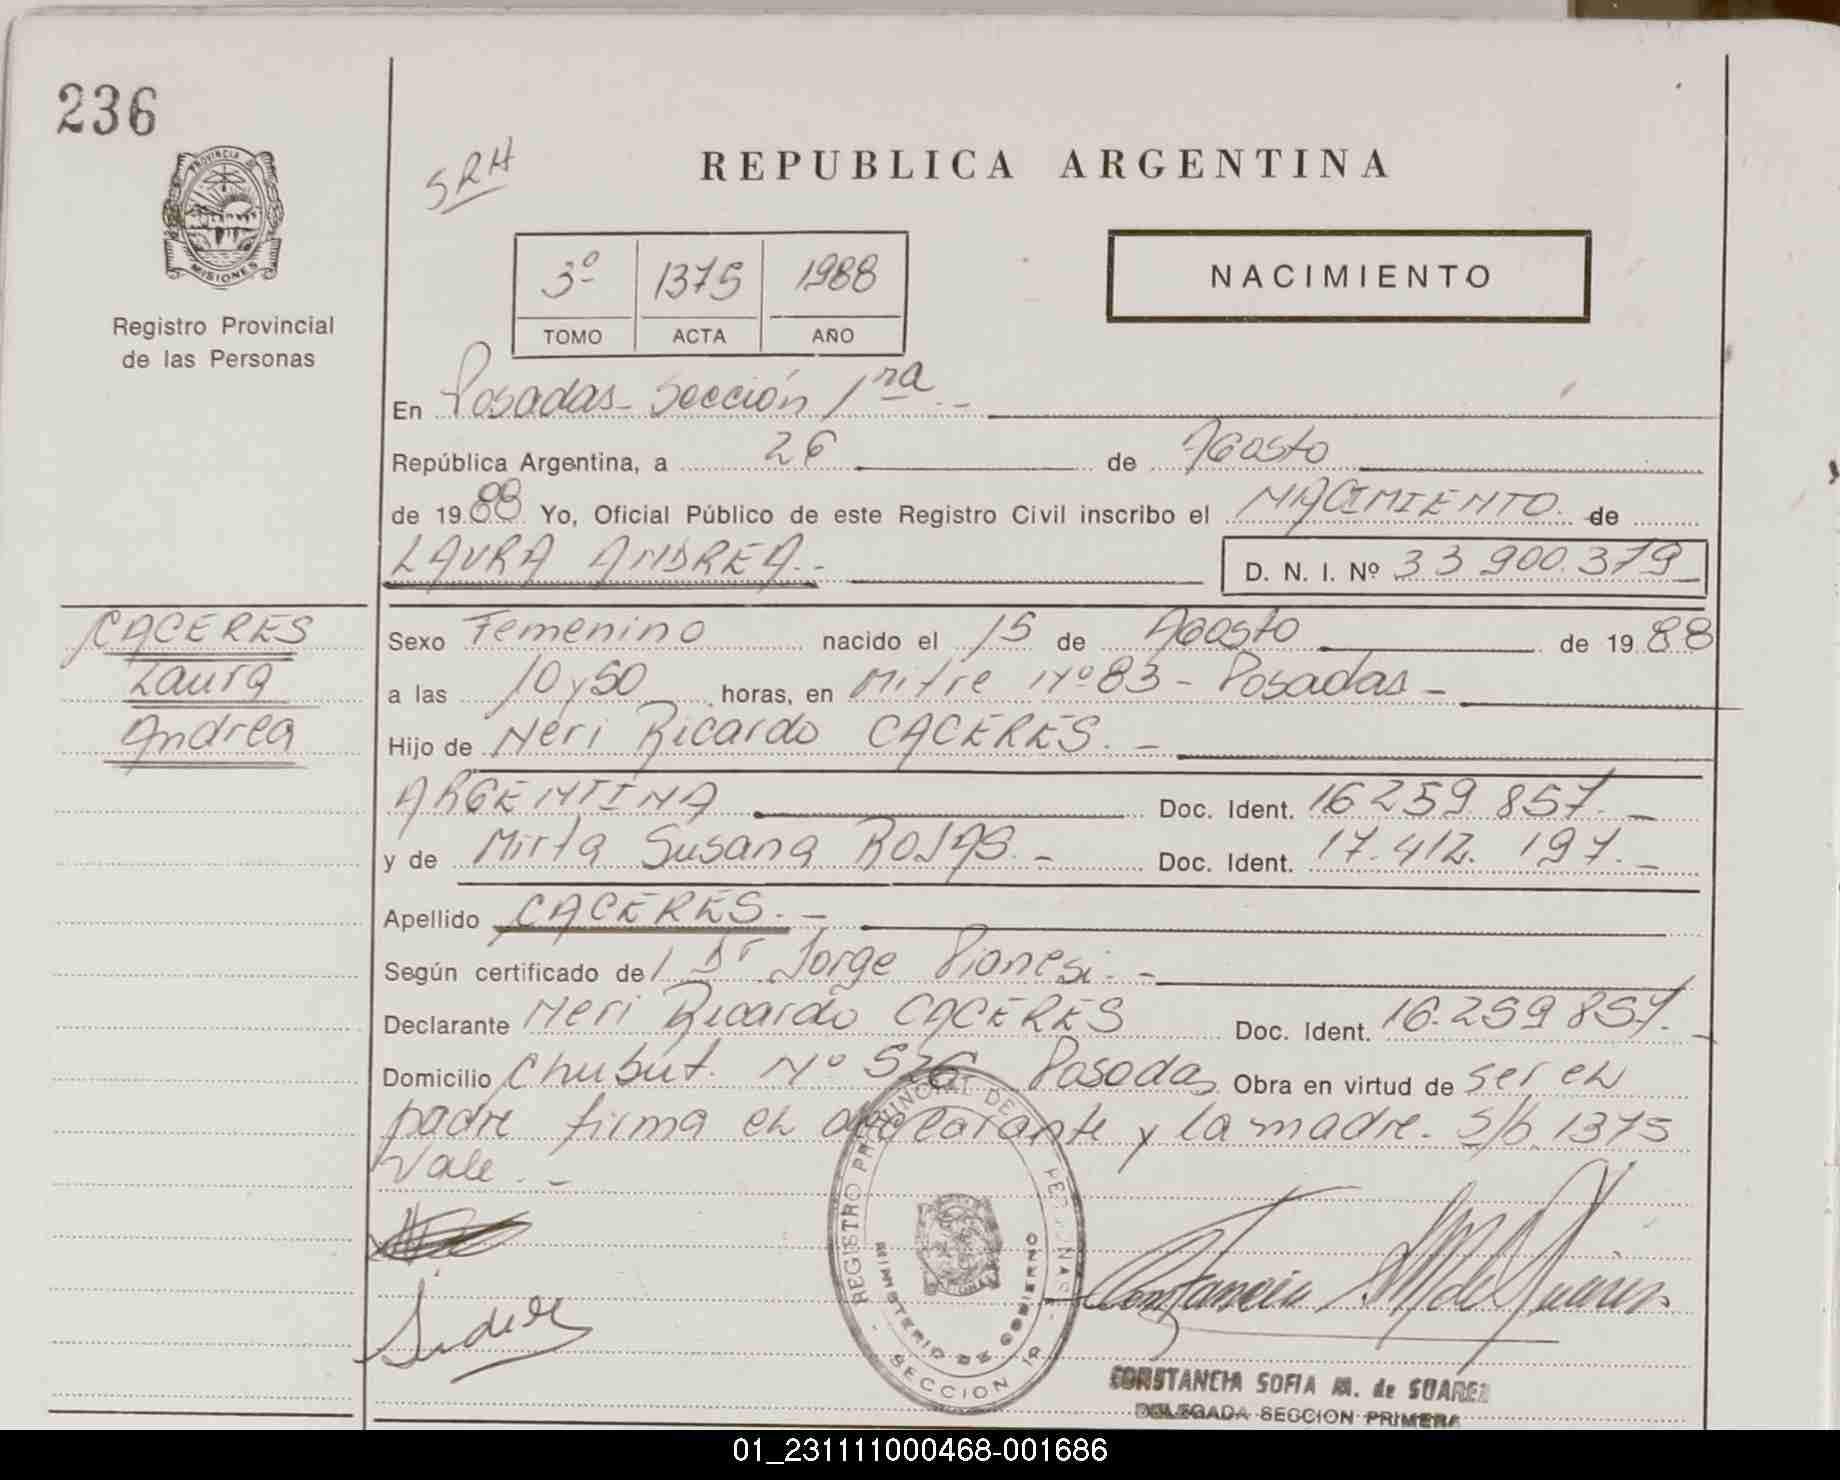 236
SRH
REPUBLICA ARGENTINA
PROVINCIA DE
MISIONES
Registro Provincial
de las Personas
3º 1375 1988
TOMO ACTA AÑO
NACIMIENTO
En Posadas - Sección 1ra. -
República Argentina, a 26 de Agosto
de 1988 Yo, Oficial Público de este Registro Civil inscribo el NACIMIENTO de
LAURA ANDREA.-
D. N. I. Nº 33.900.379
CACERES
Laura
Andrea
Sexo Femenino nacido el 15 de Agosto de 1988
a las 10 y 50 horas, en Mitre Nº 83 - Posadas -
Hijo de Neri Ricardo CACERES. -
ARGENTINA Doc. Ident. 16.259.857. -
y de Mirta Susana ROJAS. - Doc. Ident. 17.412.197. -
Apellido CACERES. -
Según certificado de l Dr Jorge Pianesi. -
Declarante Neri Ricardo CACERES Doc. Ident. 16.259.857. -
Domicilio Chubut. Nº 526 Posadas Obra en virtud de ser el
padre firma el declarante y la madre. S/b 1375
Vale. -
REGISTRO PROVINCIAL DE PERSONAS
MINISTERIO DE GOBIERNO
SECCION 1ª
Constancia S M de Suarez
CONSTANCIA SOFIA M. de SUAREZ
DELEGADA SECCION PRIMERA
01_231111000468-001686